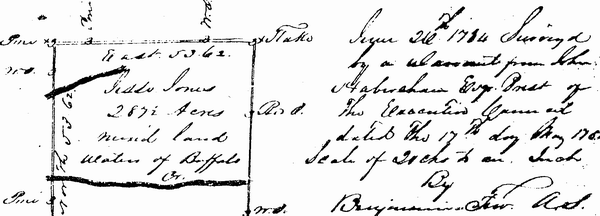 Pine
Pine
W.O.
Stake
East 53.62.
W.O.
Jesse Jones
287½ Acres
land
Waters of Buffalo
Cr.
North 53.62
R.O.
Pine
W.O.
June 26th 1784 Surveyd
by a Warrant from John
Habersham Esqr Prest of
The Executive Council
dated the 17th day May 178
Scale of 20 chs to an Inch
By
Benjamin